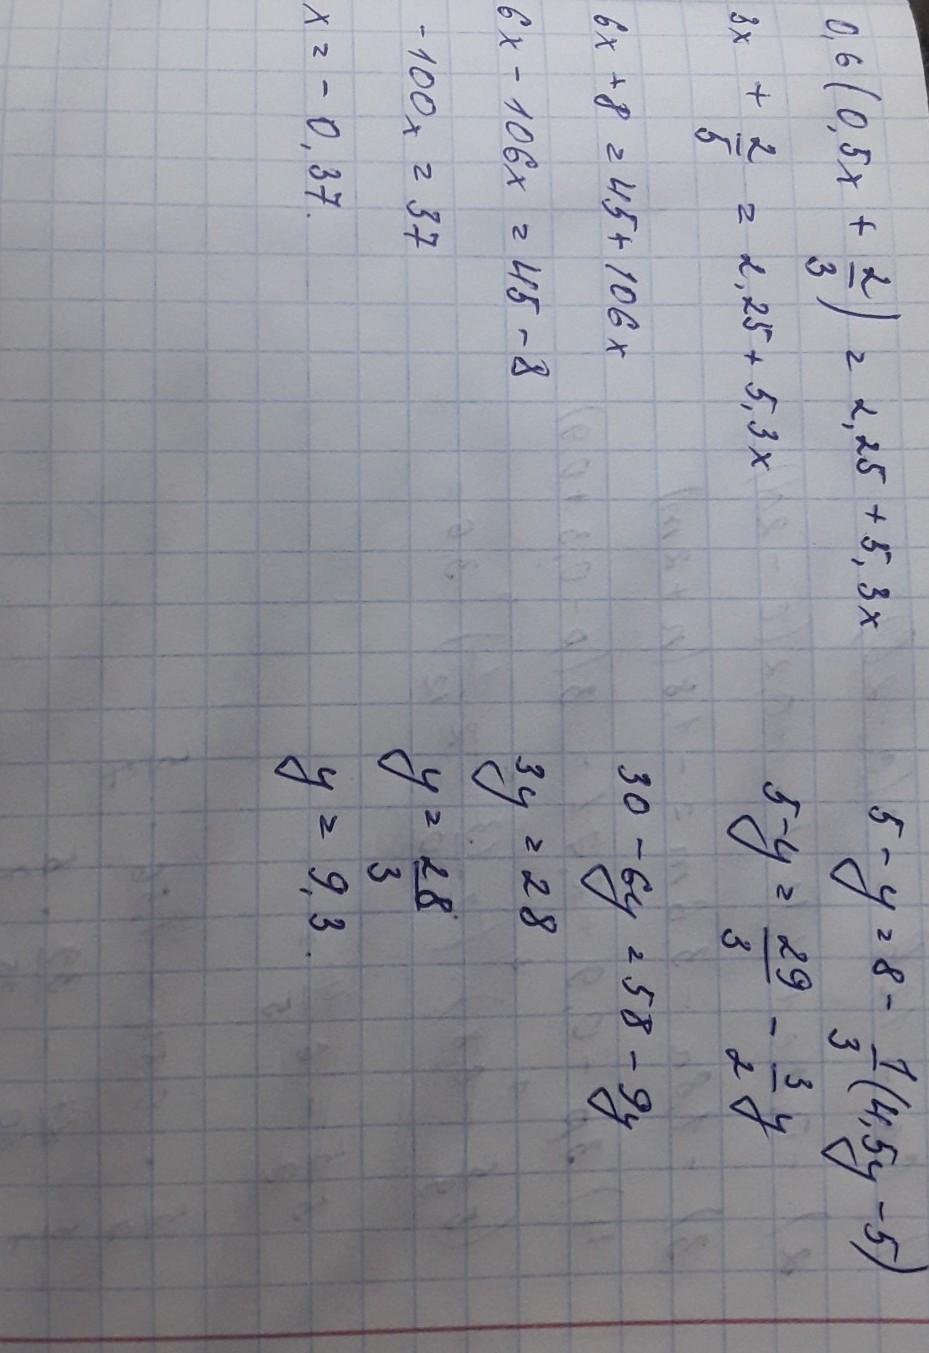 0,6(0,5x + 2/3) = 2,25 + 5,3x
3x + 2/5 = 2,25 + 5,3x
6x + 8 = 45 + 106x
6x - 106x = 45 - 8
-100x = 37
x = -0,37.
5 - y = 8 - 1/3(4,5y - 5)
5-y = 29/3 - 3/2 y
30 - 6y = 58 - 9y
3y = 28
y = 28/3
y = 9,3.